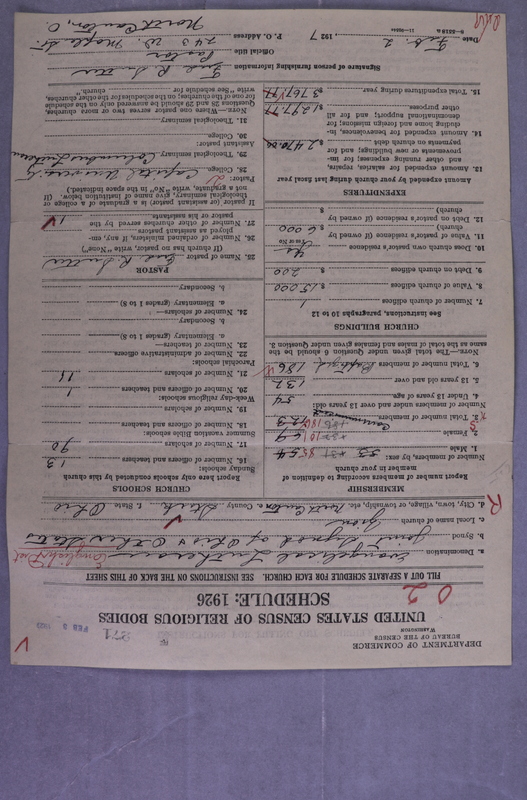 DEPARTMENT OF COMMERCE
BUREAU OF THE CENSUS
WASHINGTON
271
FEB 8 1927
UNITED STATES CENSUS OF RELIGIOUS BODIES
SCHEDULE: 1926
0 2
FILL OUT A SEPARATE SCHEDULE FOR EACH CHURCH. SEE INSTRUCTIONS ON THE BACK OF THIS SHEET
a. Denomination Evangelical Lutheran English Dist
b. Synod Joint Synod of Ohio & Other States
c. Local name of church
d. City, town, village, or township, etc. North Canton, County Stark, State Ohio
R
MEMBERSHIP
Report number of members according to definition of
member in your church
Number of members, by sex:
1. Male 85
2. Female 101
3. Total number of members 186
Number of members under and over 13 years old:
4. Under 13 years of age 54
5. 13 years old and over 132
6. Total number of members Baptized 186
NOTE.—The total given under Question 6 should be the
same as the total of males and females given under Question 3.
CHURCH BUILDINGS
See instructions, paragraphs 10 to 12
7. Number of church edifices 1
8. Value of church edifices $ 15000
9. Debt on church edifices $ 200
10. Does church own pastor's residence Yes
(Yes or No)
11. Value of pastor's residence (if owned by
church) $ 6000
12. Debt on pastor's residence (if owned by
church) $
EXPENDITURES
Amount expended by church during last fiscal year
13. Amount expended for salaries, repairs,
and other running expenses; for im-
provements or new building; and for
payments on church debt $ 2470.00
14. Amount expended for benevolences, in-
cluding home and foreign missions; for
denominational support; and for all
other purposes $ 1297.77
15. Total expenditures during year $ 3767.77
CHURCH SCHOOLS
Report here only schools conducted by this church
Sunday Schools:
16. Number of officers and teachers 13
17. Number of scholars 90
Summer vacation Bible schools:
18. Number of officers and teachers
19. Number of scholars
Week-day religious schools:
20. Number of officers and teachers 1
21. Number of scholars 11
Parochial schools:
22. Number of administrative officers
23. Number of teachers—
a. Elementary (grades 1 to 8)
b. Secondary
24. Number of scholars—
a. Elementary (grades 1 to 8)
b. Secondary
PASTOR
25. Name of pastor
(If church has no pastor, write "None")
26. Number of ordained ministers, if any, em-
ployed as assistant pastors
27. Number of other churches served by the
pastor or his assistants 1
If pastor (or assistant pastor) is a graduate of a college or
theological seminary, give name of institution below. (If
not a graduate, write "No" in the space indicated.)
Pastor:
28. College Capital University
29. Theological seminary Columbus
Assistant pastor:
30. College
31. Theological seminary
NOTE.—Where one pastor serves two or more churches,
Questions 28 and 29 should be answered only on the schedule
for one of the churches; on the schedules for the other churches,
write "See schedule for church."
Signature of person furnishing information
Official title Pastor
P. O. Address 243 W. Maple St.
North Canton, O.
Date Feb. 2, 1927